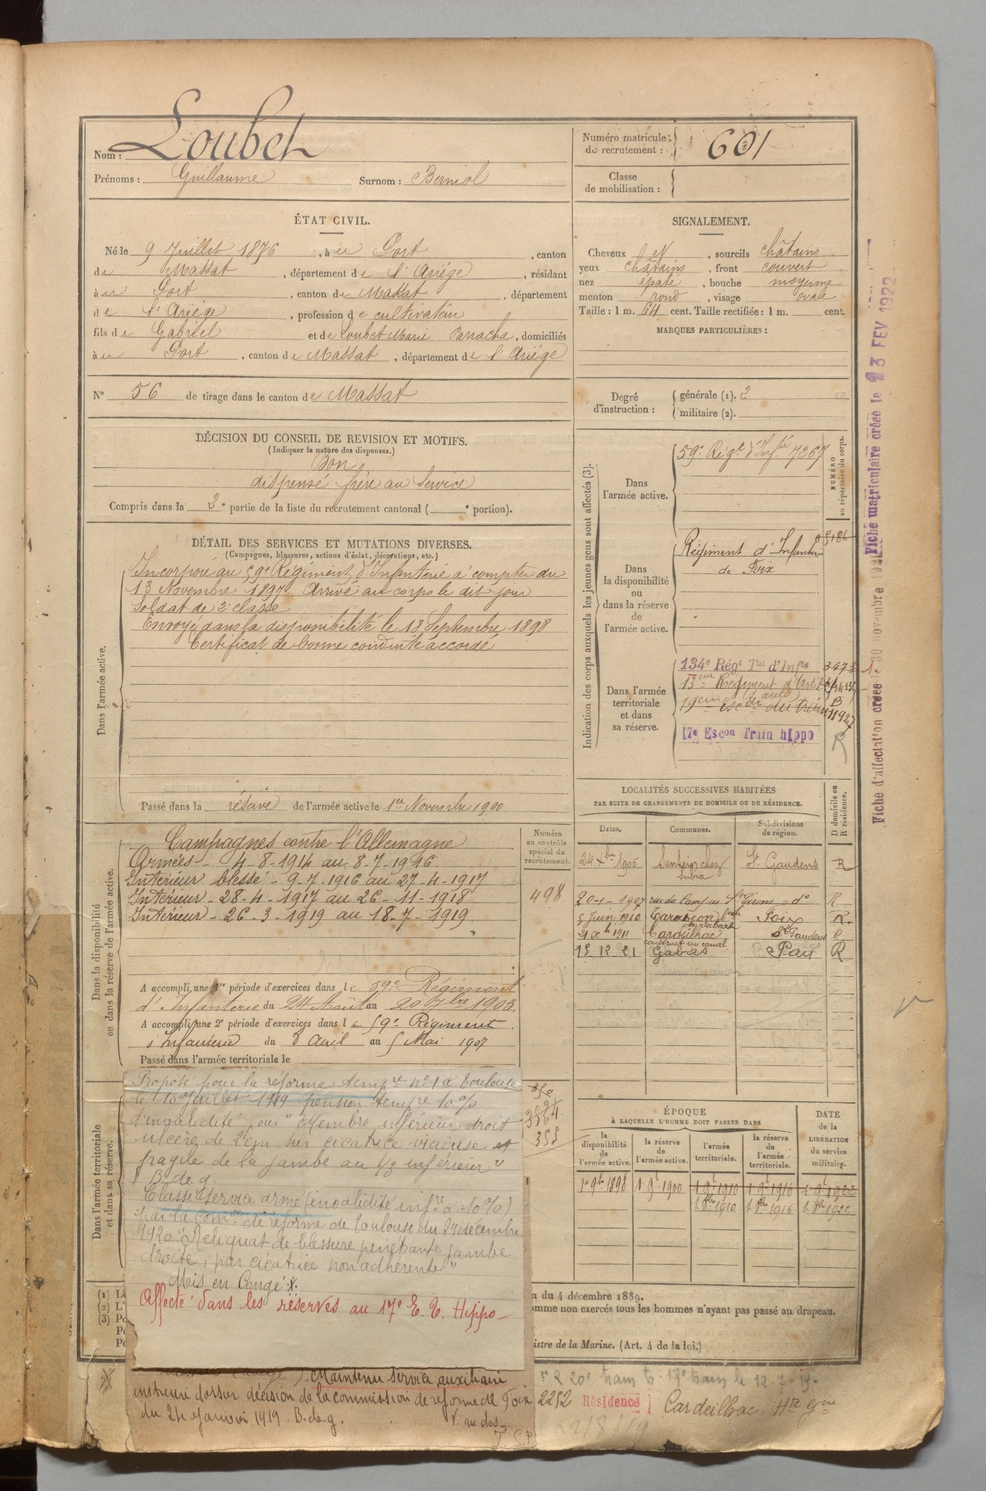 Nom : Loubet
Prénoms : Guillaume Surnom : Berniol
Numéro matricule du recrutement : 601
Classe de mobilisation :
ÉTAT CIVIL.
Né le 9 Juillet 1876, à Le Port, canton
de Massat, département de l'Ariège, résidant
à Le Port, canton de Massat, département
de l'Ariège, profession de cultivateur
fils de Gabriel et de Loubet Marie, domiciliés
à Le Port, canton de Massat, département de l'Ariège
N° 56 de tirage dans le canton de Massat
SIGNALEMENT.
Cheveux et, sourcils châtains
yeux châtains, front couvert
nez épaté, bouche moyenne
menton rond, visage ovale
Taille : 1 m. 64 cent. Taille rectifiée : 1 m. cent.
MARQUES PARTICULIÈRES :
Degré d'instruction : générale (1). 2
militaire (2).
DÉCISION DU CONSEIL DE REVISION ET MOTIFS.
(Indiquer la nature des dispenses.)
Bon
dispensé frère au service
Compris dans la 2e partie de la liste du recrutement cantonal ( e portion).
DÉTAIL DES SERVICES ET MUTATIONS DIVERSES.
(Campagnes, blessures, actions d'éclat, décorations, etc.)
Dans l'armée active.
Incorporé au 59e Régiment d'Infanterie à compter du
13 Novembre 1897 Arrivé au corps le dit jour
Soldat de 2e classe
Envoyé dans la disponibilité le 18 Septembre 1898
Certificat de bonne conduite accordé
Passé dans la réserve de l'armée active le 1er Novembre 1900
Indication des corps auxquels les jeunes gens sont affectés (3).
NUMÉRO au répertoire du corps.
Dans l'armée active.
59e Régt d'Infie 7267
Dans la disponibilité ou dans la réserve de l'armée active.
Régiment d'Infanterie
de Foix
Dans l'armée territoriale et dans sa réserve.
134e Régt Tal d'Infie
13eme Régiment d'Art
17e Escon Train hippo
Fiche d'affectation créée
Fiche matriculaire créée le 23 FEV 1922
Dans la disponibilité ou dans la réserve de l'armée active.
Numéro au contrôle spécial du recrutement.
498
Campagnes contre l'Allemagne
Armées - 4-8-1914 au 8-7-1916
Intérieur blessé - 9-7-1916 au 27-4-1917
Intérieur - 28-4-1917 au 26-11-1918
Intérieur - 26-3-1919 au 18-7-1919
A accompli une 1re période d'exercices dans le 59e Régiment
d'Infanterie du 24 Août au 20 7bre 1903
A accompli une 2e période d'exercices dans le 59e Régiment
d'Infanterie du 8 Avril au 5 Mai 1907
Passé dans l'armée territoriale le
LOCALITÉS SUCCESSIVES HABITÉES
PAR SUITE DE CHANGEMENTS DE DOMICILE OU DE RÉSIDENCE.
Dates. Communes. Subdivisions de région. D domicile ou R résidence.
1905 St Gaudens R
20-1-1907 do R
5 Juin 1910 Tarascon Foix R
1911 Cardeilhac St Gaudens R
15 12 21 Gabas Pau R
Dans l'armée territoriale et dans sa réserve.
Proposé pour la réforme tempre n° 1 à Toulouse
le 10 Juillet 1919 pension tempre 10%
d'invalidité pour "membre inférieur droit
ulcère de sur cicatrice vicieuse et
fragile de la jambe au 1/3 inférieur"
B. de g.
Classé service armé (invalidité infre à 10%)
par la comon de réforme de Toulouse du 24 décembre
1920 "Reliquat de blessure pénétrante jambe
droite, par cicatrice non adhérente"
Mis en Congé
Affecté dans les réserves au 17e E. T. Hippo
ÉPOQUE
À LAQUELLE L'HOMME DOIT PASSER DANS
la disponibilité de l'armée active. la réserve de l'armée active. l'armée territoriale. la réserve de l'armée territoriale. DATE de la LIBÉRATION du service militaire.
1898 1900 1910 1916 1922
1910 1916 1922
(1)
(2)
(3)
du 4 décembre 1889.
omme non exercés tous les hommes n'ayant pas passé au drapeau.
istre de la Marine. (Art. 4 de la loi.)
Maintenu service auxiliaire
instruire dossier décision de la commission de réforme de Foix
du 24 Janvier 1919. B. de g. V. au dos
2252 Résidence Cardeilhac Hte Gne